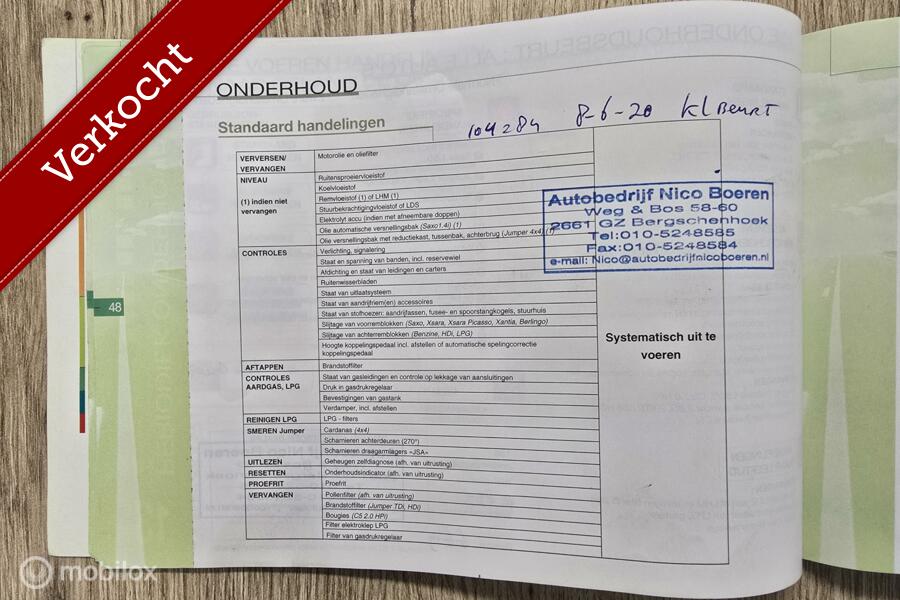 Verkocht
ONDERHOUD
Standaard handelingen
104284 8-6-20 Kl BEURT
VERVERSEN/ VERVANGEN
Motorolie en oliefilter
NIVEAU
(1) indien niet vervangen
Ruitensproeiervloeistof
Koelvloeistof
Remvloeistof (1) of LHM (1)
Stuurbekrachtigingvloeistof of LDS
Elektrolyt accu (indien met afneembare doppen)
Olie automatische versnellingsbak (Saxo1.4i) (1)
Olie versnellingsbak met reductiekast, tussenbak, achterbrug (Jumper 4x4) (1)
CONTROLES
Verlichting, signalering
Staat en spanning van banden, incl. reservewiel
Afdichting en staat van leidingen en carters
Ruitenwisserbladen
Staat van uitlaatsysteem
Staat van aandrijfriem(en) accessoires
Staat van stofhoezen: aandrijfassen, fusee- en spoorstangkogels, stuurhuis
Slijtage van voorremblokken (Saxo, Xsara, Xsara Picasso, Xantia, Berlingo)
Slijtage van achterremblokken (Benzine, HDi, LPG)
Hoogte koppelingspedaal incl. afstellen of automatische spelingcorrectie
koppelingspedaal
AFTAPPEN
Brandstoffilter
CONTROLES AARDGAS, LPG
Staat van gasleidingen en controle op lekkage van aansluitingen
Druk in gasdrukregelaar
Bevestigingen van gastank
Verdamper, incl. afstellen
REINIGEN LPG
LPG - filters
SMEREN Jumper
Cardanas (4x4)
Scharnieren achterdeuren (270°)
Scharnieren draagarmlagers «JSA»
UITLEZEN
Geheugen zelfdiagnose (afh. van uitrusting)
RESETTEN
Onderhoudsindicator (afh. van uitrusting)
PROEFRIT
Proefrit
VERVANGEN
Pollenfilter (afh. van uitrusting)
Brandstoffilter (Jumper TDi, HDi)
Bougies (C5 2.0 HPi)
Filter elektroklep LPG
Filter van gasdrukregelaar
Systematisch uit te
voeren
Autobedrijf Nico Boeren
Weg & Bos 58-60
2661 GZ Bergschenhoek
Tel:010-5248585
Fax:010-5248584
e-mail: Nico@autobedrijfnicoboeren.nl
48
mobilox